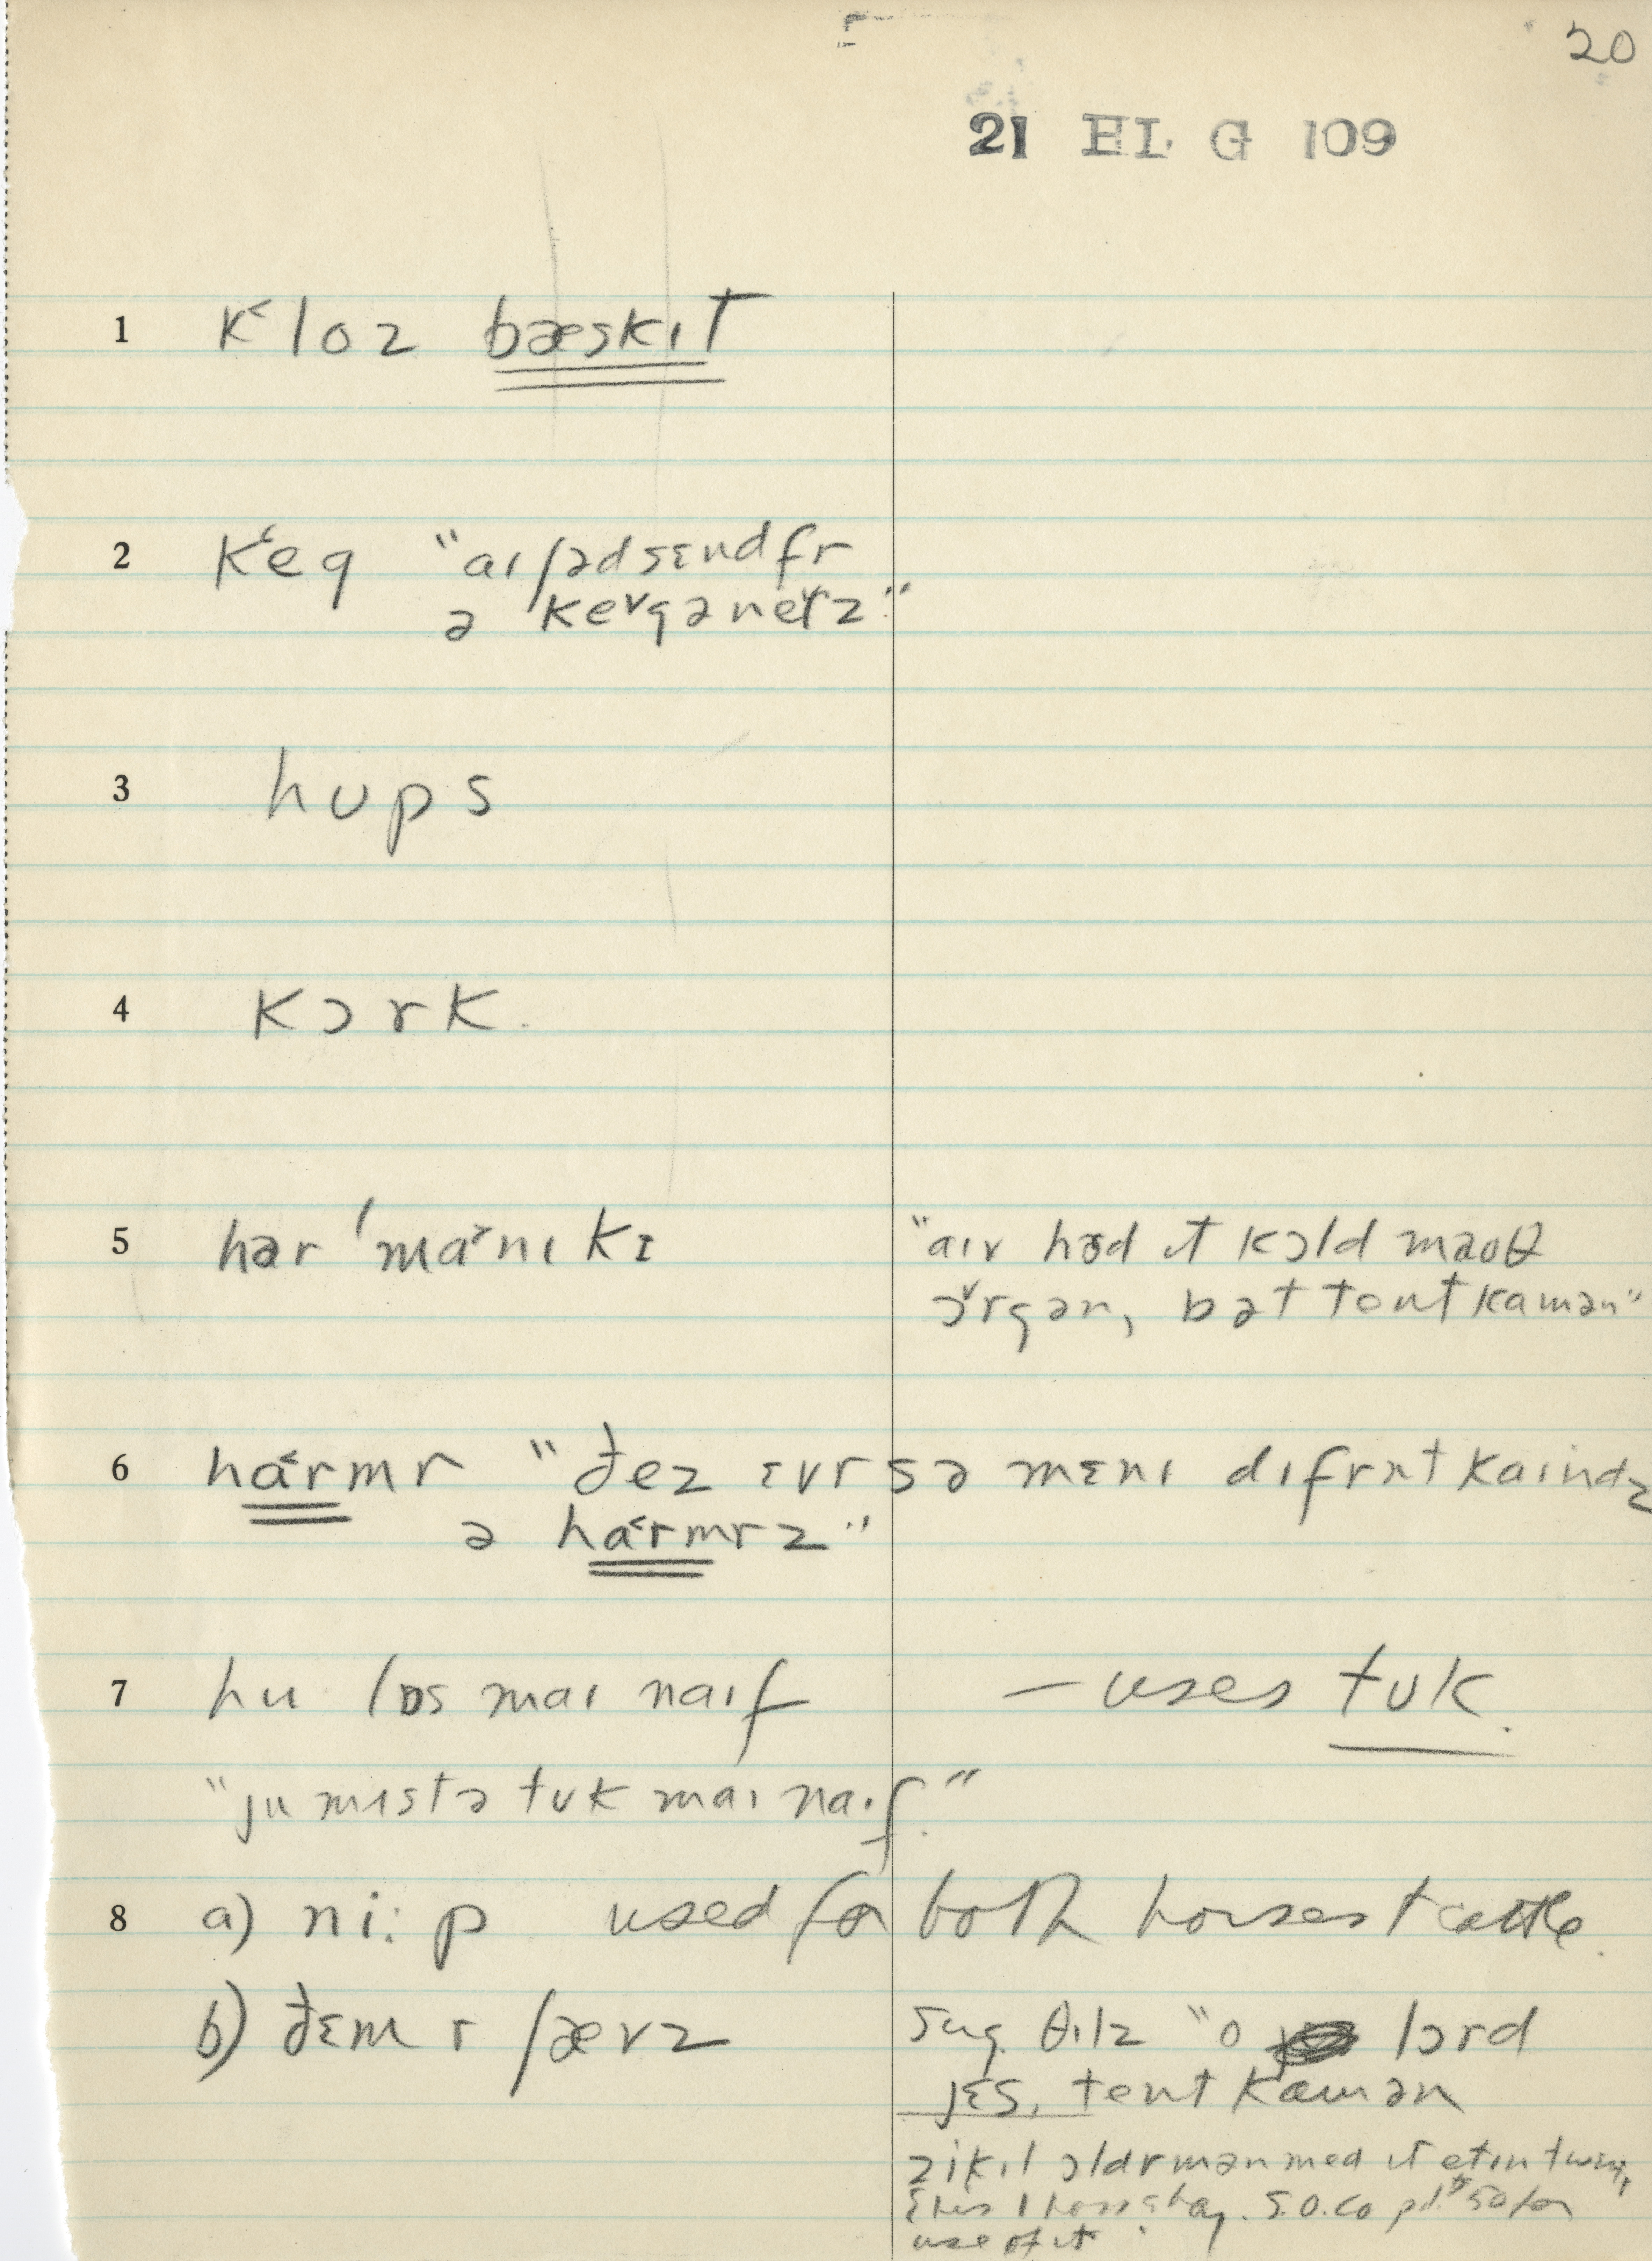 20
21 HL G 109
1 k‹loz bæskɪt
2 k‹eg "aɪ ʃəd sɛnd fr
ə ke˅g ə ne˅lz"
3 hʊps
4 kɔrk.
5 hər ˈma›nɪkɪ "aɪv hɜd ɪt kɔld maʊθ
ɔ˅rgən, bət tont kamən"
6 ha‹rmr "ðez ɛvr sə mɛnɪ dɪfrnt kaɪndz
ə ha‹rmrz"
7 hu lɒs maɪ naɪf — uses tʊk.
"ju mɪstə tʊk maɪ naɪf."
8 a) ni:p used for both horses + cattle.
b) ðɛm r ʃævz Sug. θɪlz "o lɔrd
jɛs, tent kamən
ɔldrmən med ɪt
S.O.Co pd. 50 for
use of it